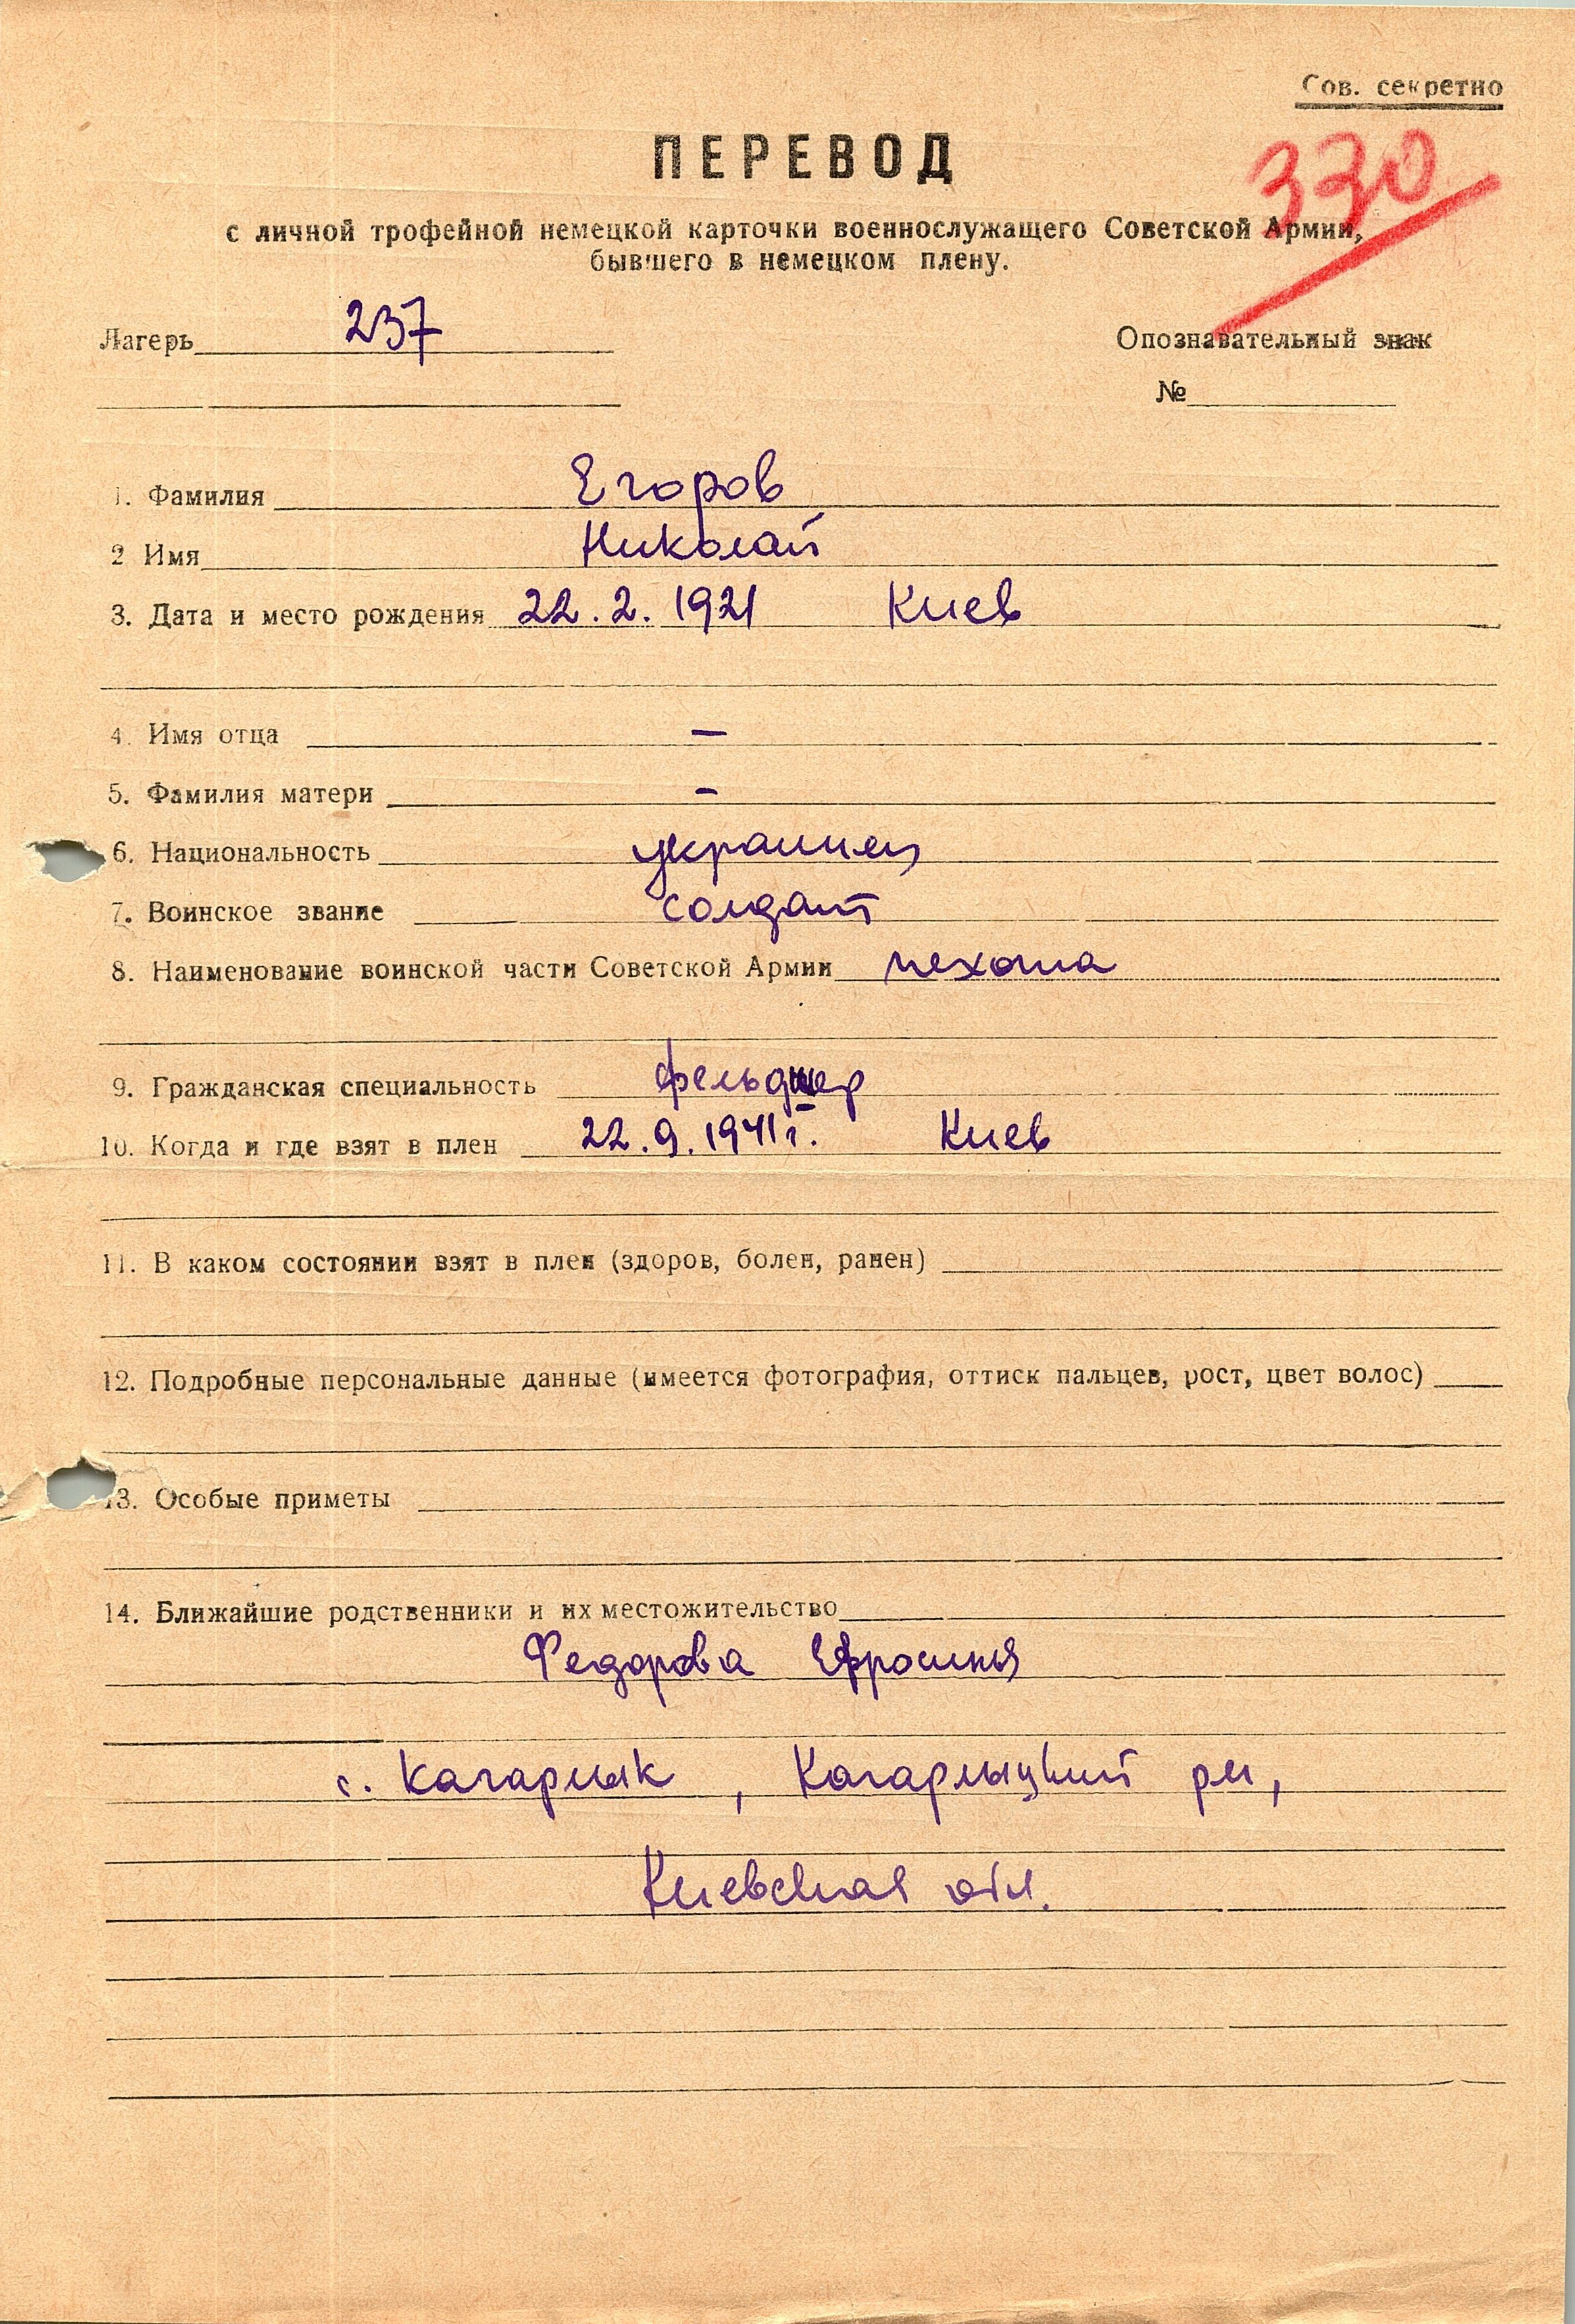 Сов. секретно
ПЕРЕВОД
330
с личной трофейной немецкой карточки военнослужащего Советской Армии,
бывшего в немецком плену.
Лагерь 237
Опознавательный знак
№
1. Фамилия Егоров
2 Имя Николай
3. Дата и место рождения 22.2.1921 Киев
4. Имя отца —
5. Фамилия матери —
6. Национальность украинец
7. Воинское звание солдат
8. Наименование воинской части Советской Армии пехота
9. Гражданская специальность фельдшер
10. Когда и где взят в плен 22.9.1941 г. Киев
11. В каком состоянии взят в плен (здоров, болен, ранен)
12. Подробные персональные данные (имеется фотография, оттиск пальцев, рост, цвет волос)
13. Особые приметы
14. Ближайшие родственники и их местожительство
Федорова Ефросинья
с. Кагарлык, Кагарлыцкий рн,
Киевская обл.